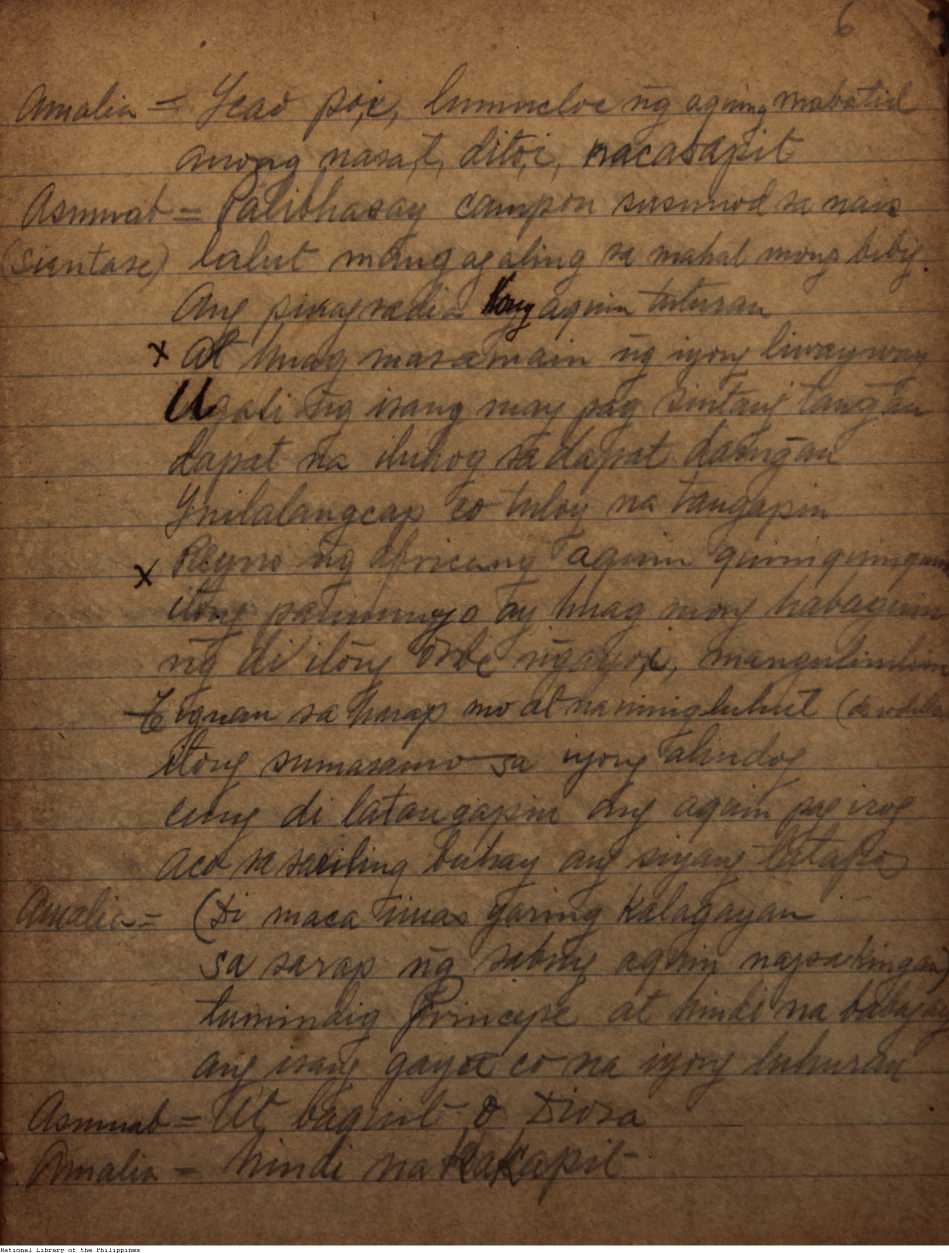 6
Amalia = Icao po,i, lumucloc ng aquing mabatid
anong nasa,t, dito,i, nacasapit
Asmurat = Palibhasay campon susunod sa nais
(sientase) lalut mangagaling sa mahal mong bibig
Ang pinag sadia kong aquin tuturan
x At huag masamain ng iyong liwayway
Ugali ng isang may pag sintang tangan
dapat na iluhog sa dapat daingan
Ynilalangcap co tuloy na tangapin
x Reyno ng Africang aquin
itong paninuyo ay huag mong habaguin
ng di itong orbe ngayo,i,
Tignan sa harap mo at naninigluhut
itong sumasamo sa iyong alindog
cung di tatangapin ang aquin pag irog
aco sa sariling buhay ang siyang tatapos
Amalia = (Di maca iiuas yaring kalagayan
sa sarap ng sabing aquin napakingan
tumindig Principe at hindi na babagay
ang isang gaya co na iyong luhuran
Asmurat = At baquit o Diosa
Amalia = hindi na kakapit
National Library of the Philippines